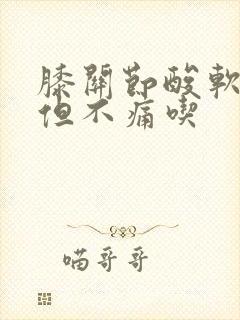 膝關節酸軟
但不痛喫
喵哥哥